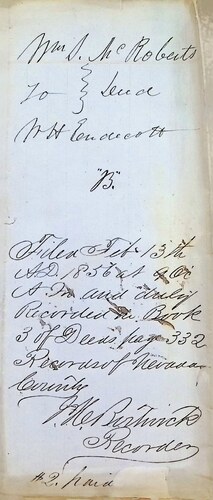 Wm S. McRoberts
To } Deed
W H Endecott
"B."
Filed Feb 13th
A.D. 1856 at 9 Oc
A.M. and duly
Recorded in Book
3 of Deeds, page 332
Records of Nevada
County
Recorder
$2. paid